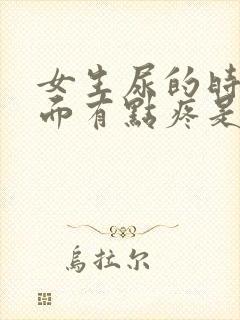 女生尿的時
而有點疼是
烏拉尔